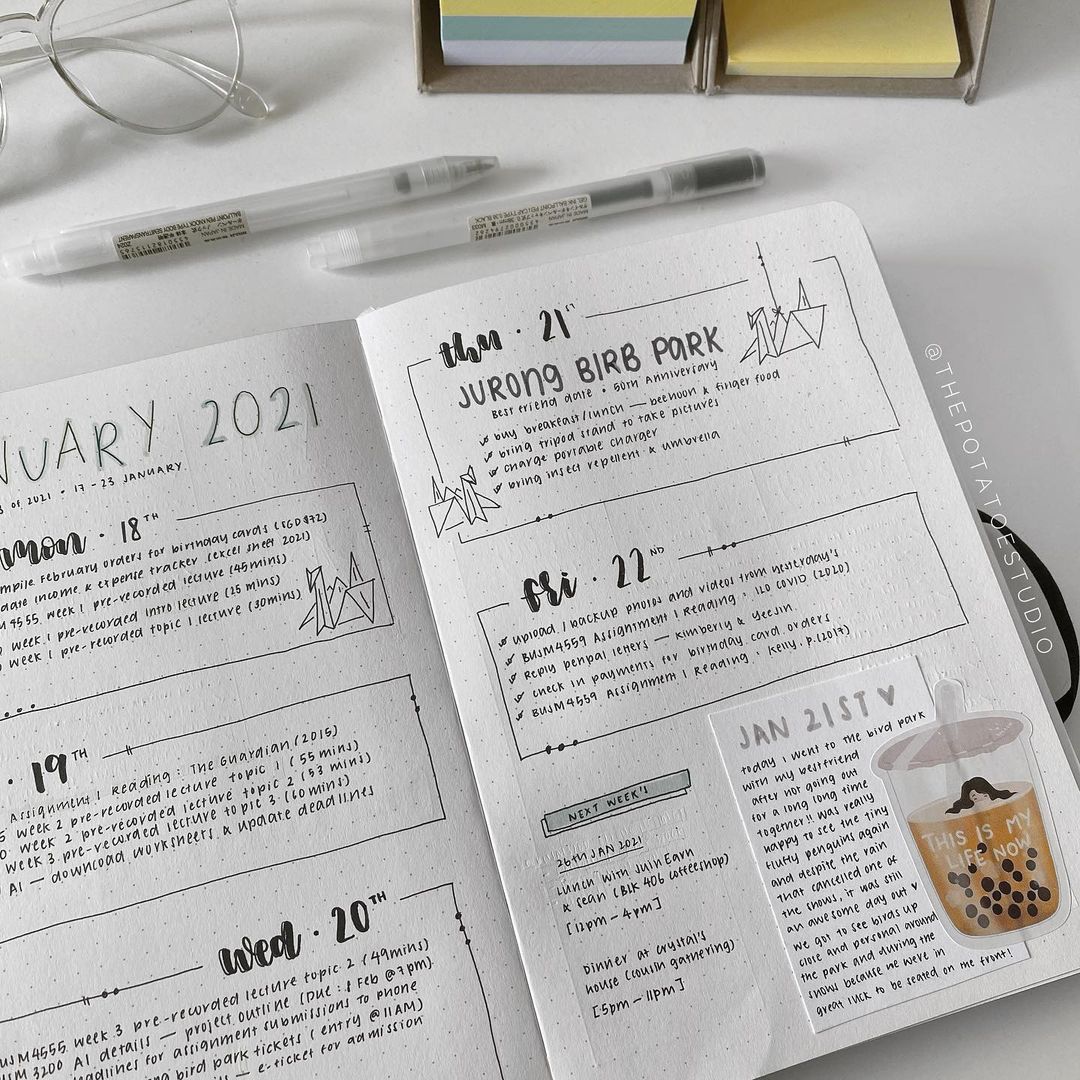 NUARY 2021
3 of 2021 • 17 - 23 JANUARY
mon • 18TH
mpile February orders for birthday cards (SGD$72)
date income & expense tracker (excel sheet 2021)
M4555 week 1 pre-recorded lecture (45mins)
week 1 pre-recorded intro lecture (25 mins)
week 1 pre-recorded topic 1 lecture (30mins)
• 19TH
Assignment 1 Reading : The Guardian (2015)
5 week 2 pre-recorded lecture topic 1 (55 mins)
0 week 2 pre-recorded lecture topic 2 (53 mins)
week 3 pre-recorded lecture topic 3 (60 mins)
A1 — download worksheets & update deadlines
wed • 20TH
BUSM4555 week 3 pre-recorded lecture topic 2 (49mins)
BUSM 3200 A1 details — project outline (Due : 1 Feb @ 7pm)
deadlines for assignment submissions to phone
bird park tickets (entry @ 11AM)
— e-ticket for admission
thu • 21ST
JURONG BIRB PARK
Best friend date • 50th Anniversary
buy breakfast/lunch — beehoon & finger food
bring tripod stand to take pictures
charge portable charger
bring insect repellent & umbrella
fri • 22ND
upload / backup photos and videos from yesterday's
BUSM4559 Assignment 1 Reading : ILO COVID (2020)
Reply penpal letters — Kimberly & Yeejin
check in payments for birthday card orders
BUSM4559 Assignment 1 Reading : Kelly, P. (2017)
NEXT WEEK'S
26TH JAN 2021
Lunch with Juin Earn
& Sean (BLK 406 coffeeshop)
[12pm – 4pm]
Dinner at Crystal's
house (cousin gathering)
[5pm – 11pm]
JAN 21ST ♥
today I went to the bird park
with my bestfriend
after not going out
for a long long time
together!! was really
happy to see the tiny
fluffy penguins again
and despite the rain
that cancelled one of
the shows, it was still
an awesome day out ♥
we got to see birds up
close and personal around
the park and during the
shows because we were in
great luck to be seated on the front!
THIS IS MY
LIFE NOW
@THEPOTATOESTUDIO
BALLPOINT PEN KNOCK TYPE BODY SEMITRANSPARENT
MADE IN JAPAN
GEL INK BALLPOINT PEN CAP TYPE 0.38 BLACK
MADE IN JAPAN